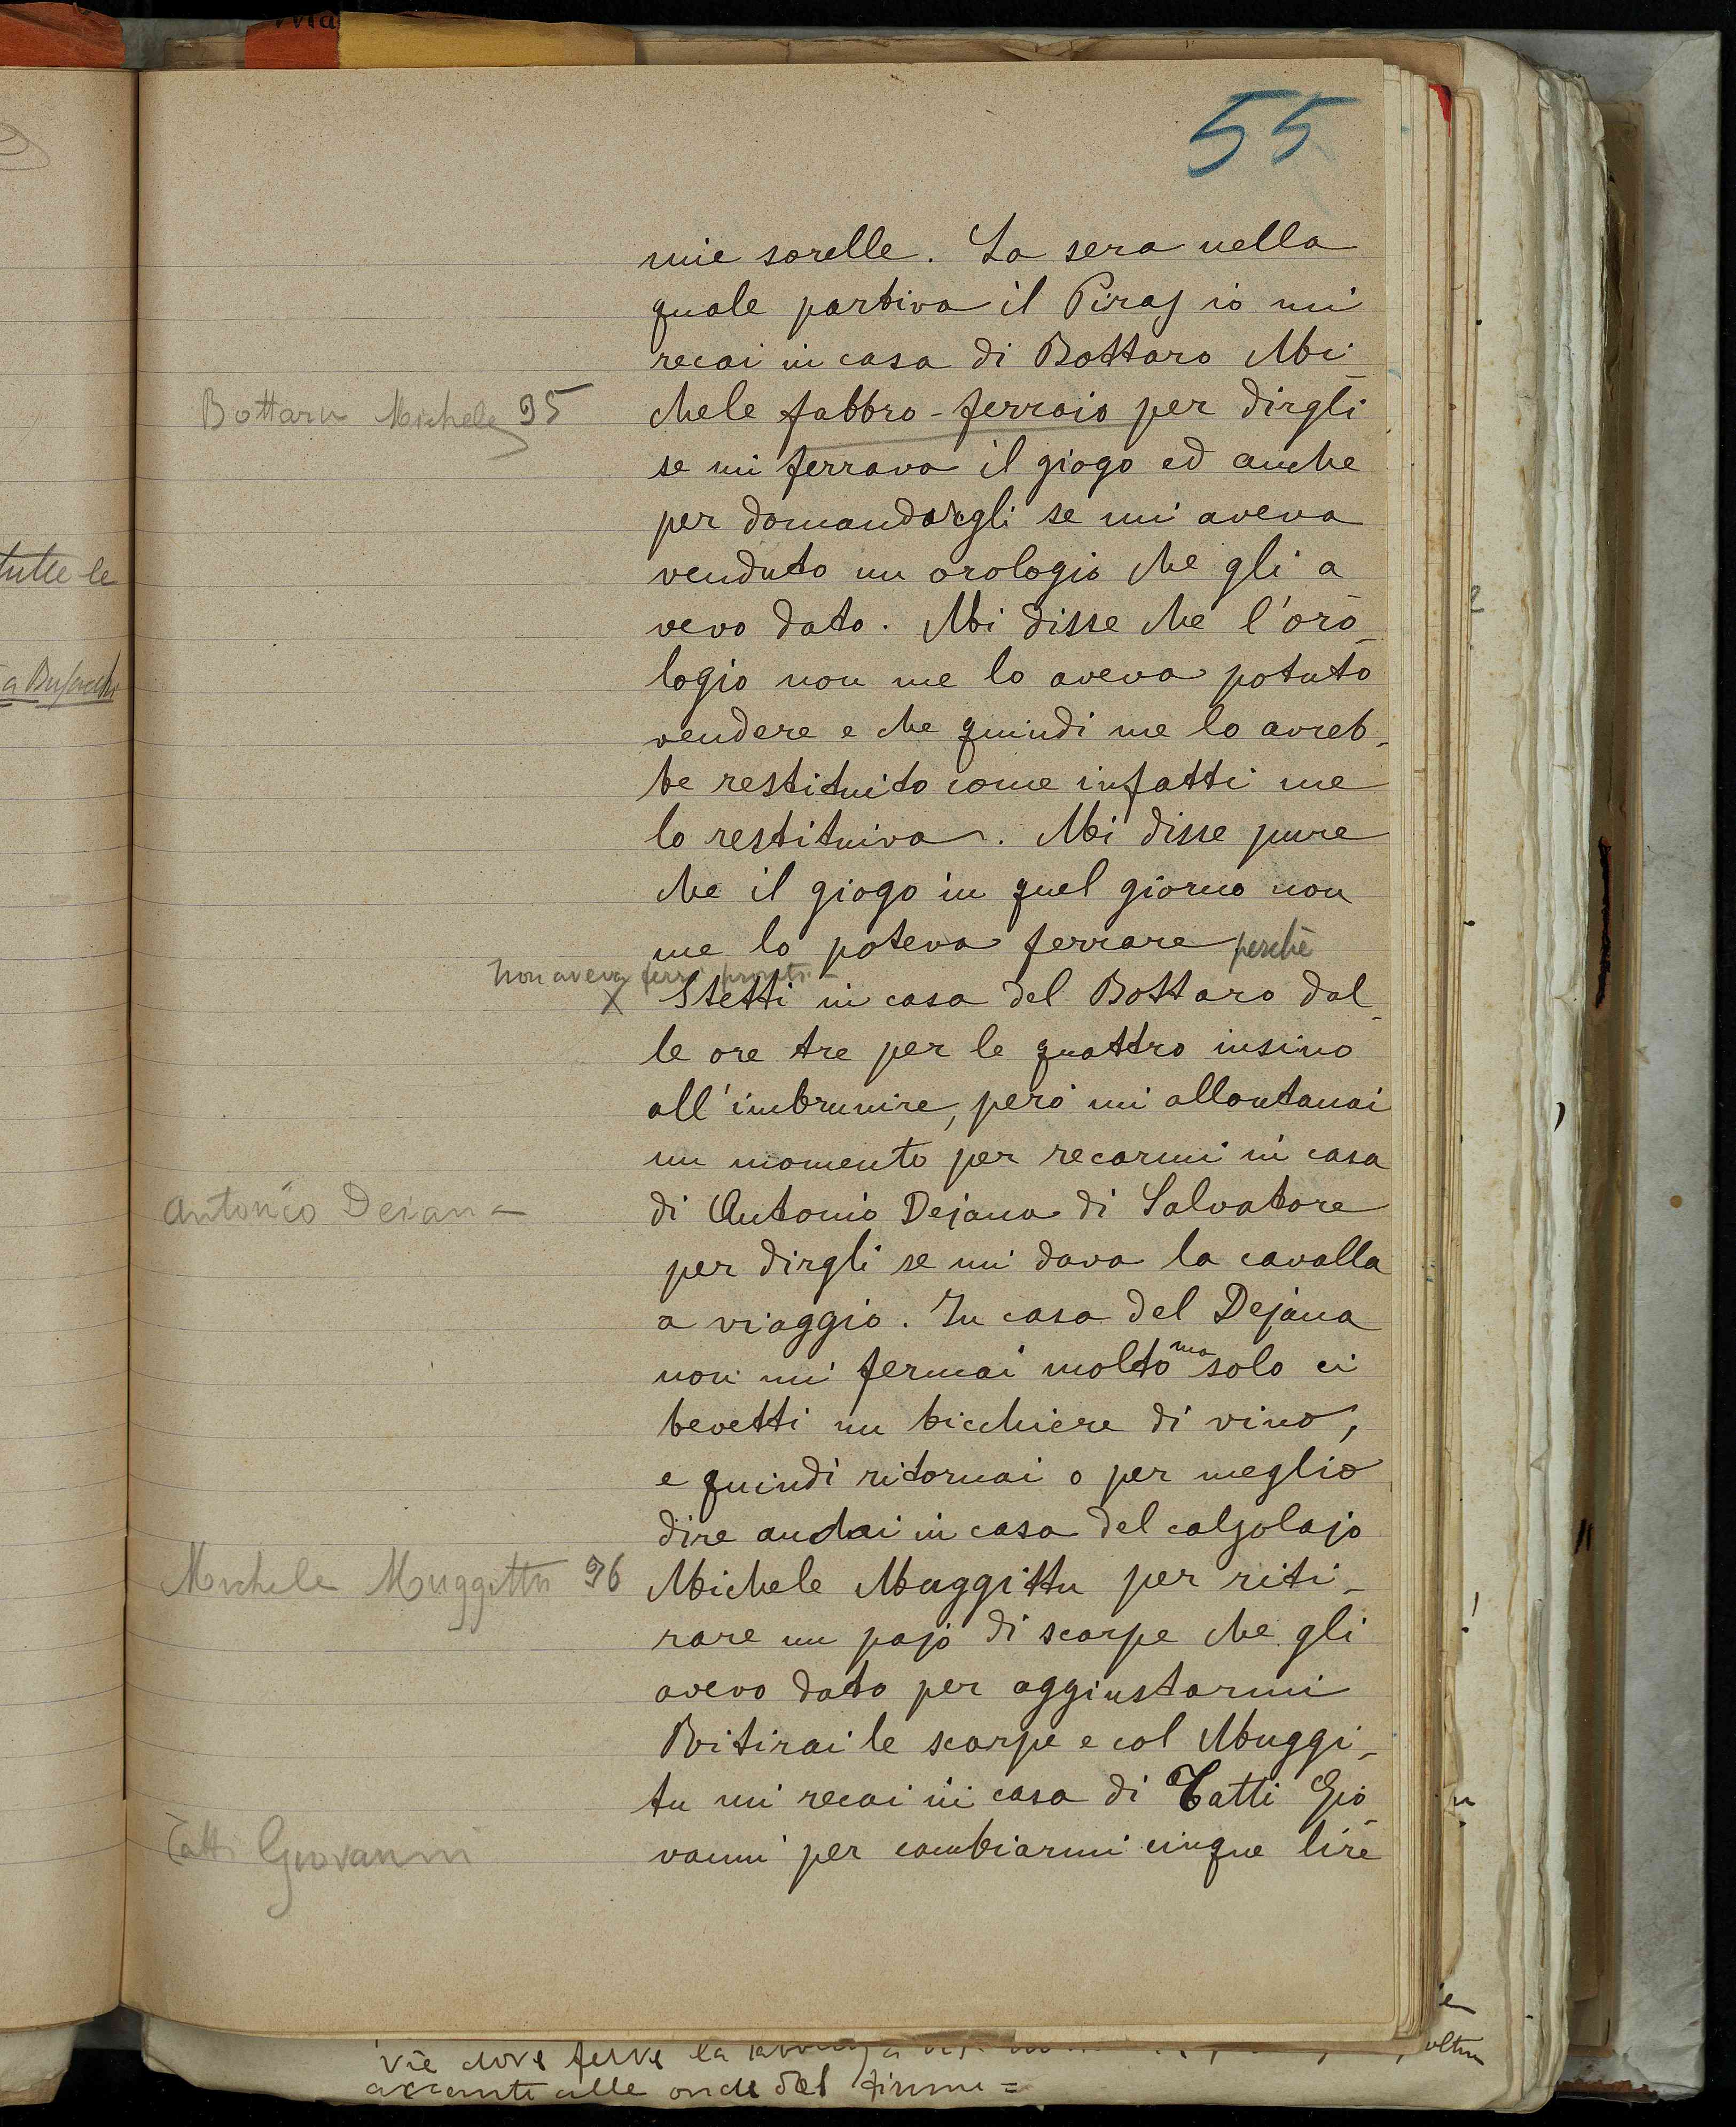 55
mie sorelle. La sera nella
quale partiva il Piras io mi
recai in casa di Bottaro Mi
Bottaru Michele 95
chele fabbro-ferraio per dirgli
se mi ferrava il giogo ed anche
per domandargli se mi aveva
venduto un orologio che gli a
vevo dato. Mi disse che l'oro-
logio non me lo aveva potuto
vendere e che quindi me lo avreb-
be restituito come infatti me
lo restituiva. Mi disse pure
che il giogo in quel giorno non
me lo poteva ferrare perchè
non aveva ferri pronti -
X Stetti in casa del Bottaro dal-
le ore tre per le quattro insino
all'imbrunire, però mi allontanai
un momento per recarmi in casa
Antonio Deiana
di Antonio Dejana di Salvatore
per dirgli se mi dava la cavalla
a viaggio. In casa del Dejana
non mi fermai molto ma solo ci
bevetti un bicchiere di vino,
e quindi ritornai o per meglio
dire andai in casa del calzolajo
Michele Muggittu 96
Michele Muggittu per riti-
rare un pajo di scarpe che gli
avevo dato per aggiustarmi
Ritirai le scarpe e col Muggi-
tu mi recai in casa di Tatti Gio
Tatti Giovanni
vanni per cambiarmi cinque lire
tutte le
a Busachi
vie dove
accanto alle onde del fiume =
oltre